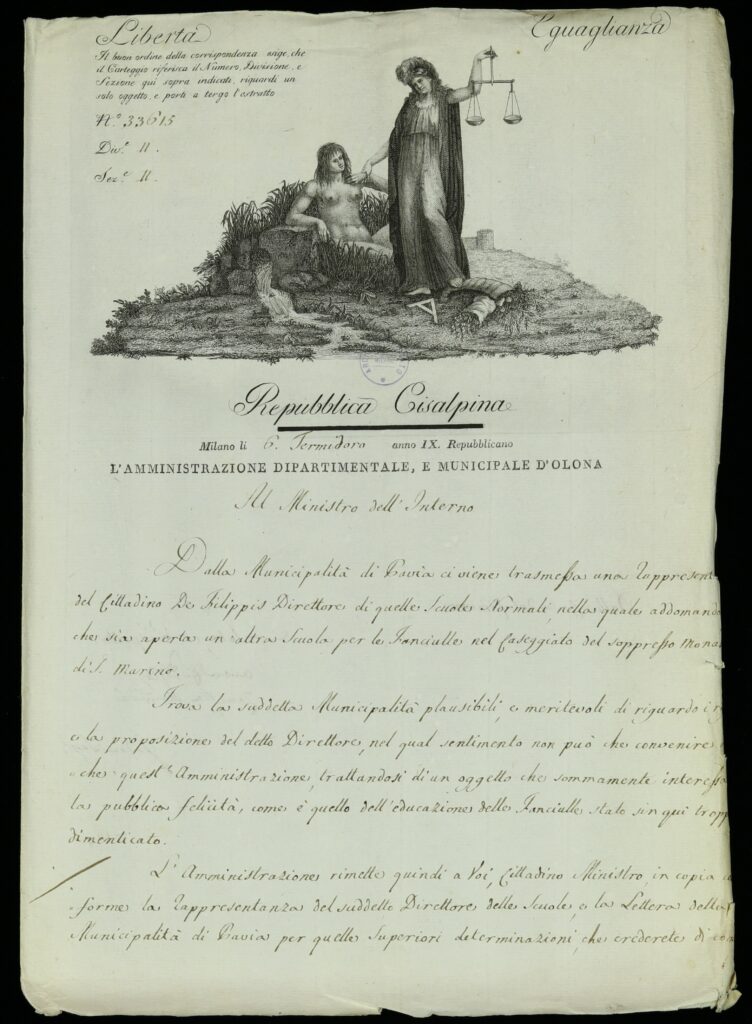 Libertà
Eguaglianza
Il buon ordine della corrispondenza esige, che
il Carteggio riferisca il Numero, Divisione, e
Sezione qui sopra indicati, riguardi un
solo oggetto, e porti a tergo l'estratto
N.º 33615
Div.e II.
Sez.e II.
Repubblica Cisalpina
Milano li 6. Termidoro anno IX. Repubblicano
L'AMMINISTRAZIONE DIPARTIMENTALE, E MUNICIPALE D'OLONA
Al Ministro dell'Interno
Dalla Municipalità di Pavia ci viene trasmessa una Rappresent
del Cittadino De Filippis Direttore di quelle Scuole Normali, nella quale addomanda
che sia aperta un'altra Scuola per le Fanciulle nel Caseggiato del soppresso Mona
di S. Marino.
Trova la suddetta Municipalità plausibili, e meritevoli di riguardo i
e la proposizione del detto Direttore, nel qual sentimento non può che convenire
che quest'Amministrazione, trattandosi di un oggetto che sommamente interessa
la pubblica felicità, come è quello dell'educazione delle Fanciulle stato sin qui tropp
dimenticato.
L'Amministrazione rimette quindi a Voi, Cittadino Ministro, in copia
forme la Rappresentanza del suddetto Direttore delle Scuole, e la Lettera della
Municipalità di Pavia per quelle Superiori determinazioni, che crederete di